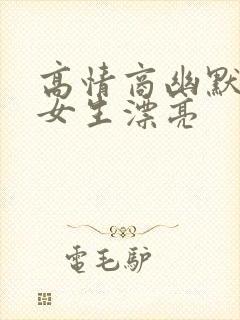 高情商幽默
女生漂亮
電毛驴